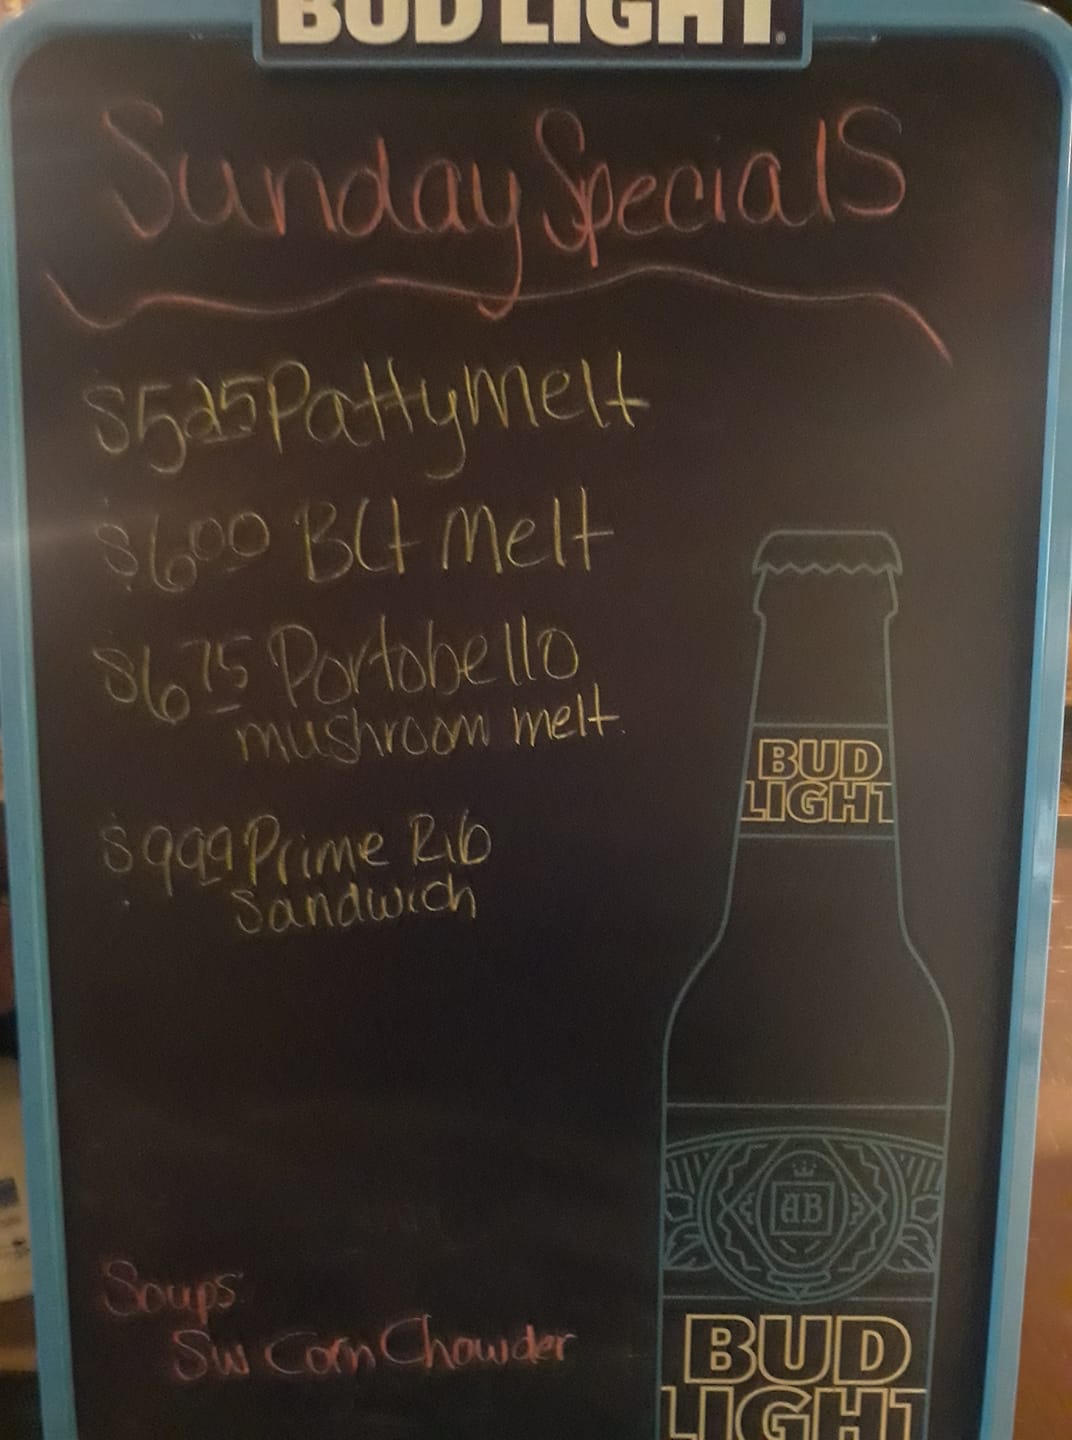 BUD LIGHT
Sunday Specials
$525 Patty Melt
$600 BLt Melt
$675 Portobello
mushroom melt
$999 Prime Rib
Sandwich
BUD
LIGHT
AB
Soups:
Sw Corn Chowder
BUD
LIGHT